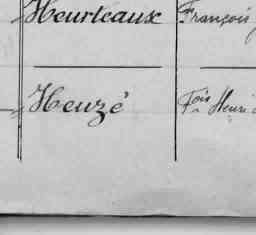 Heurteaux François
Heuzé Fois Henri